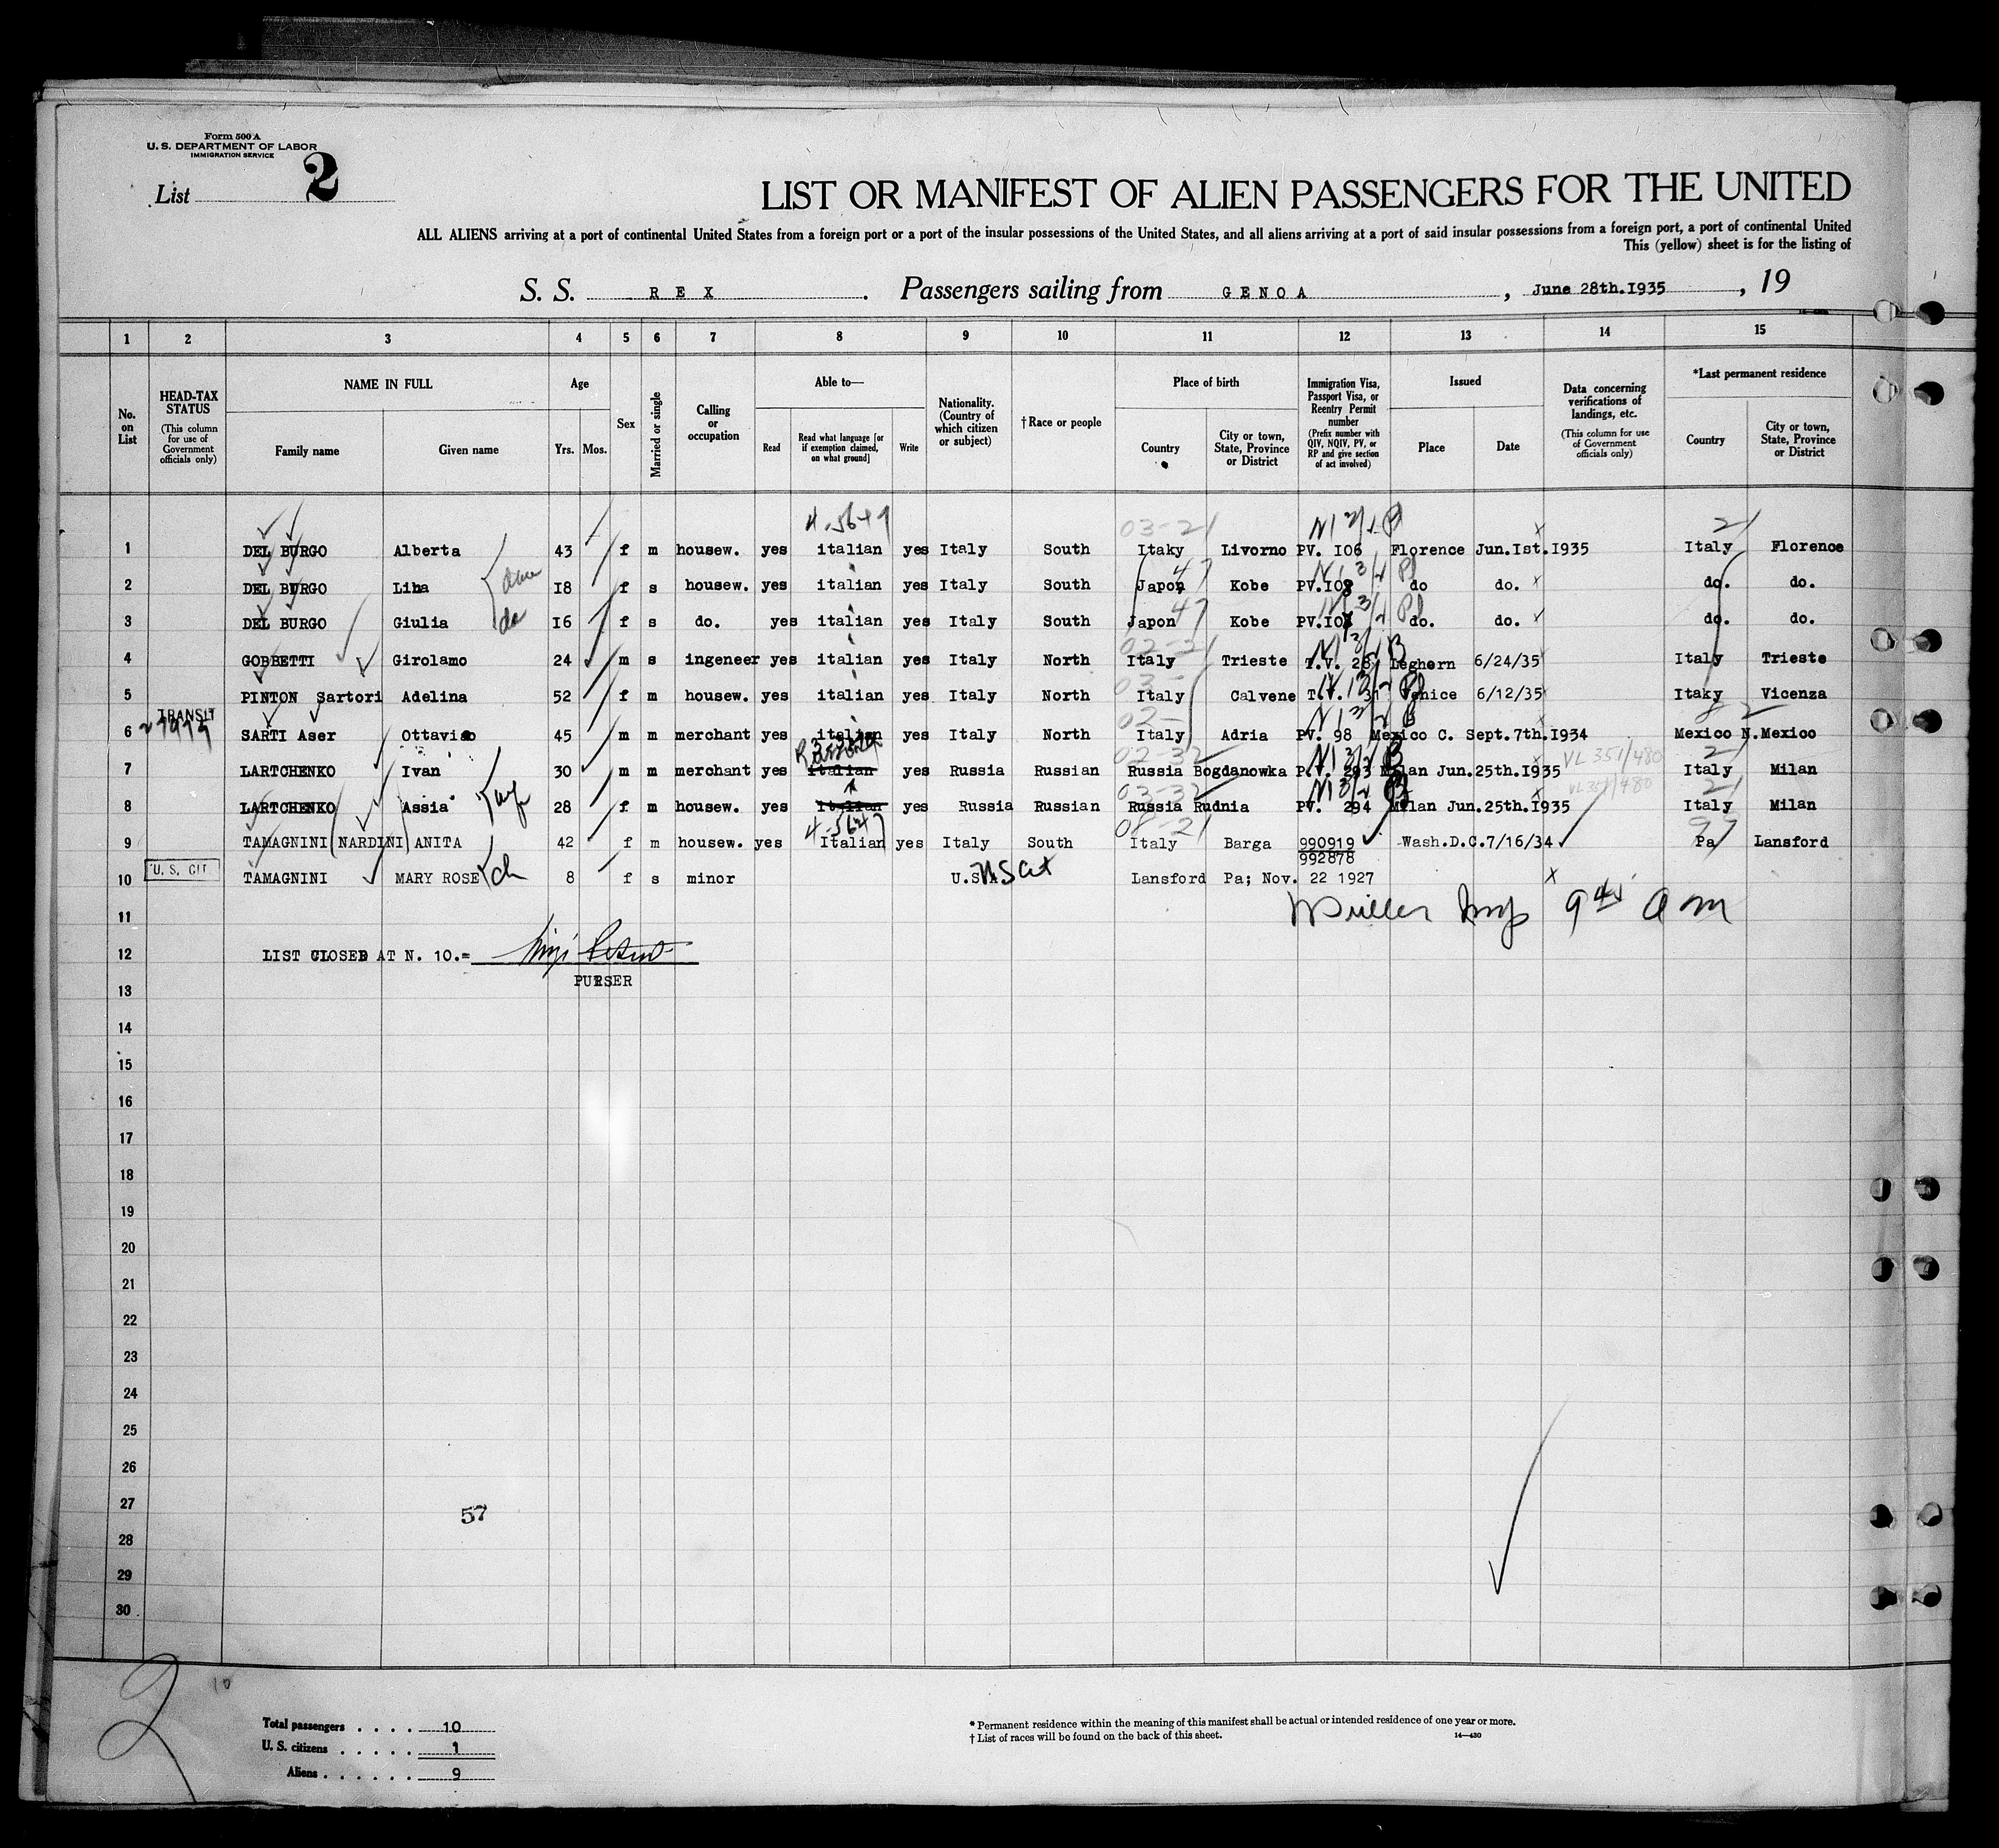 Form 500 A
U. S. DEPARTMENT OF LABOR
IMMIGRATION SERVICE
List 2
LIST OR MANIFEST OF ALIEN PASSENGERS FOR THE UNITED
ALL ALIENS arriving at a port of continental United States from a foreign port or a port of the insular possessions of the United States, and all aliens arriving at a port of said insular possessions from a foreign port, a port of continental United
This (yellow) sheet is for the listing of
S. S. REX . Passengers sailing from GENOA , June 28th.I935 , 19
1 2 3 4 5 6 7 8 9 10 11 12 13 14 15
No. on List
HEAD-TAX STATUS (This column for use of Government officials only)
NAME IN FULL
Family name Given name
Age
Yrs. Mos.
Sex
Married or single
Calling or occupation
Able to—
Read
Read what language [or if exemption claimed, on what ground]
Write
Nationality. (Country of which citizen or subject)
† Race or people
Place of birth
Country
City or town, State, Province or District
Immigration Visa, Passport Visa, or Reentry Permit number (Prefix number with QIV, NQIV, PV, or RP and give section of act involved)
Issued
Place Date
Data concerning verifications of landings, etc. (This column for use of Government officials only)
*Last permanent residence
Country
City or town, State, Province or District
03-21 21
1 DEL BURGO Alberta 43 f m housew. yes italian yes Italy South Itaky Livorno PV. I06 Florence Jun.Ist.I935 Italy Florence
2 DEL BURGO Lina I8 f s housew. yes italian yes Italy South Japon 47 Kobe PV.I08 do do. do. do.
3 DEL BURGO Giulia do I6 f s do. yes italian yes Italy South Japon 47 Kobe PV.I07 do. do. do. do.
4 GOBBETTI Girolamo 24 m s ingeneer yes italian yes Italy North Italy Trieste T.V. 28 Leghorn 6/24/35 Italy Trieste
5 PINTON Sartori Adelina 52 f m housew. yes italian yes Italy North Italy Calvene T.V. 31 Venice 6/12/35 Itaky Vicenza
TRANSIT
6 SARTI Aser Ottavio 45 m m merchant yes italian yes Italy North Italy Adria PV. 98 Mexico C. Sept.7th.I934 Mexico N.Mexico
02-32 VL 351/480 21
7 LARTCHENKO Ivan 30 m m merchant yes italian yes Russia Russian Russia Bogdanowka P.V. 293 Milan Jun.25th.I935 Italy Milan
03-32 VL 351/480 21
8 LARTCHENKO Assia 28 f m housew. yes Italian yes Russia Russian Russia Rudnia PV. 294 Milan Jun.25th.I935 Italy Milan
08-21
9 TAMAGNINI (NARDINI) ANITA 42 f m housew. yes Italian yes Italy South Italy Barga 990919 Wash.D.C.7/16/34 Pa Lansford
992878
U. S. CIT.
10 TAMAGNINI MARY ROSE ch 8 f s minor U.S.A. US Cit Lansford Pa; Nov. 22 1927
11
12 LIST CLOSED AT N. 10.=
PURSER
13
14
15
16
17
18
19
20
21
22
23
24
25
26
27
57
28
29
30
2
10
Total passengers . . . . 10
U. S. citizens . . . . . 1
Aliens . . . . . . 9
* Permanent residence within the meaning of this manifest shall be actual or intended residence of one year or more.
† List of races will be found on the back of this sheet.
14—430